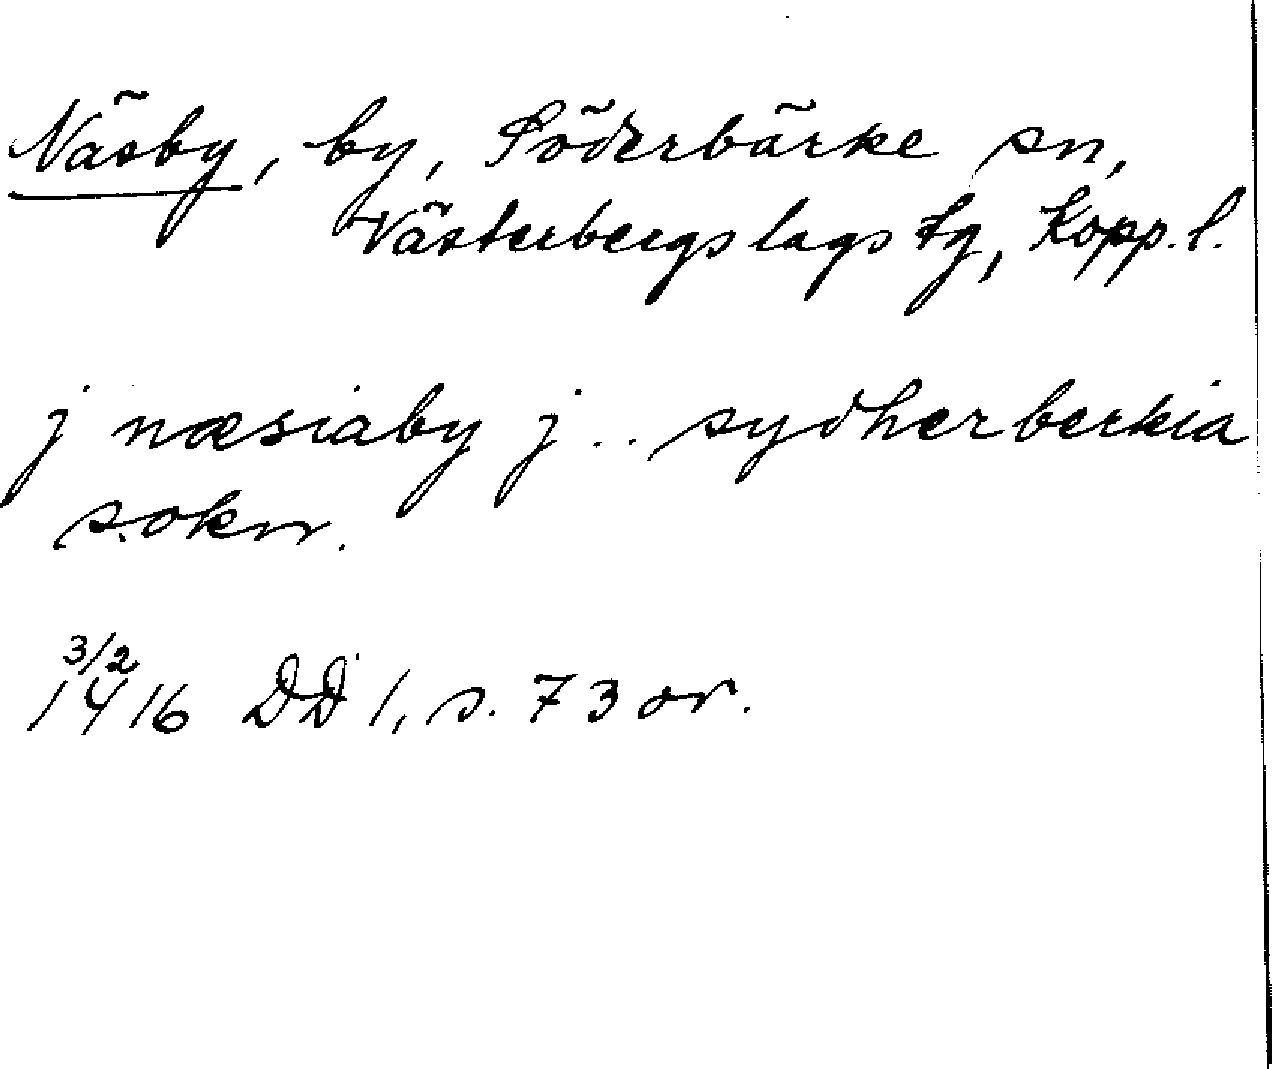 Näsby, by, Söderbärke sn,
Västerbergslags tg, Kopp. l.
j næsiaby j .. sydherberkia
sokn.
3/2
1416 DD 1, s. 73 or.